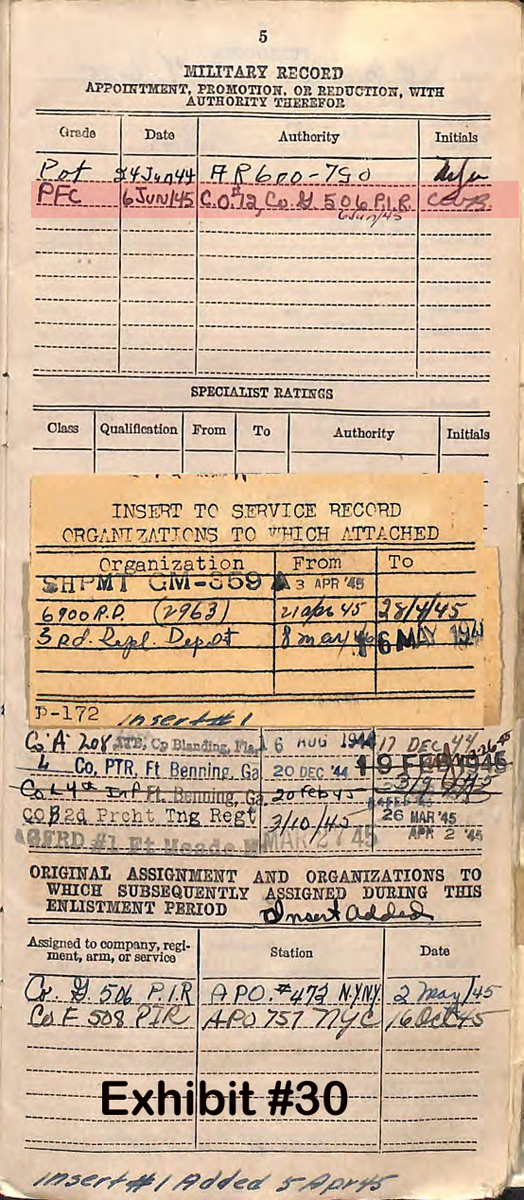 5
MILITARY RECORD
APPOINTMENT, PROMOTION, OR REDUCTION, WITH
AUTHORITY THEREFOR
Grade Date Authority Initials
Pvt 24 Jun 44 AR 600-750
PFC 6 JUN/45 C.O.#12, Co. G 506 P.I.R. CWB
6 Jun/45
SPECIALIST RATINGS
Class Qualification From To Authority Initials
INSERT TO SERVICE RECORD
ORGANIZATIONS TO WHICH ATTACHED
Organization From To
SHPMT GM-359 A 3 APR '45
6900 R.D. (2963) 21 apr 45 28/4/45
3 rd. Repl. Depot 8 may 16 MAY 194
D-172 insert #1
Co A 208 ITB, Cp Blanding, Fla. 16 AUG 1944 17 DEC 44
L Co, PTR, Ft. Benning, Ga 20 DEC '44 19 FEB 1945
Co L 4th Inf Ft. Benning, Ga. 20 Feb 45 3/9
CO B 2d Prcht Tng Regt 3/10/45 26 MAR '45
AGFRD #1 Ft Meade MAR 27 45 APR 2 '45
ORIGINAL ASSIGNMENT AND ORGANIZATIONS TO
WHICH SUBSEQUENTLY ASSIGNED DURING THIS
ENLISTMENT PERIOD Insert added
Assigned to company, regi-
ment, arm, or service Station Date
Co. G. 506 P.I.R APO.#472 N.Y.N.Y. 2 May/45
Co F 508 PIR APO 757 NYC 16 Oct 45
Exhibit #30
Insert #1 Added 5 Apr 45